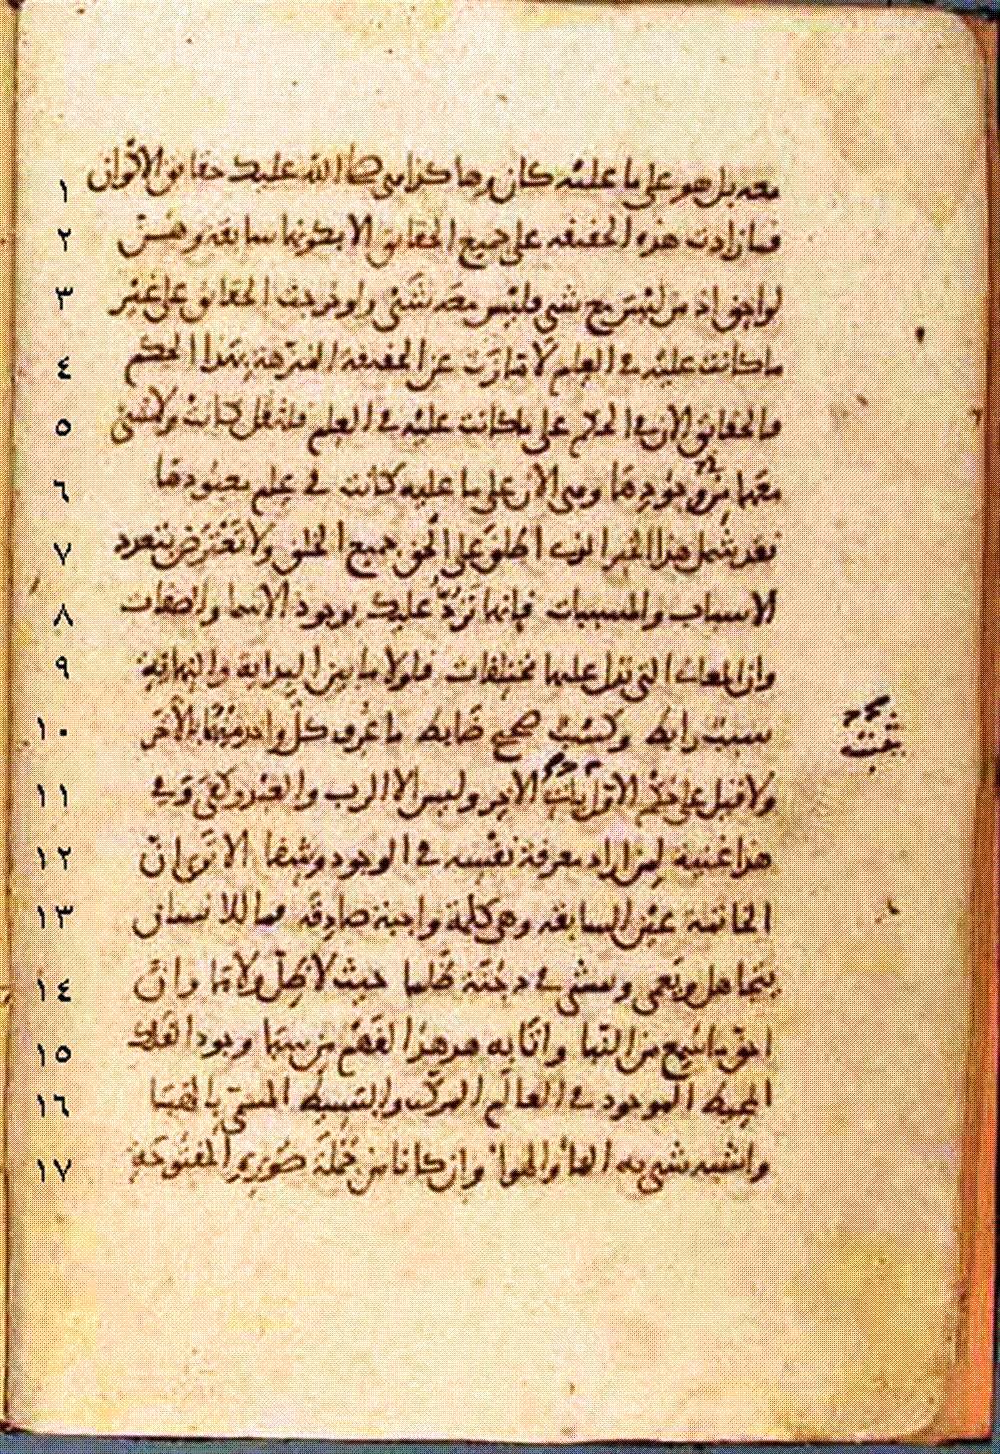 معه بل هو على ما عليه كان وهاكذا هي صلى الله عليك حقائق الاكوان ١
فما زادت هذه الحقيقه على جميع الحقائق الا بكونها سابقه وهن ٢
لواحق اذ من ليس مع شي فليس معه شي ولو خرجت الحقائق على غير ٣
ما كانت عليه في العلم لانمازت عن الحقيقه المنزهة بهذا الحكم ٤
فالحقائق الان في الحكم على ما كانت عليه في العلم فلنقل كانت ولا شي ٥
معها من وجودها وهي الان على ما عليه كانت في علم معبودها ٦
فقد شمل هذا الخبر الذي اطلق على الحق جميع الخلق ولا تعترض بتعدد ٧
الاسباب والمسببات فانها ترد عليك بوجود الاسما والصفات ٨
وان المعاني التي تدل عليها مختلفات فلولا ما بين البداية والنهاية ٩
سبب رابط وكسب صحيح ضابط ما عرف كل واحد منهما بالاخر ١٠
ولا قيل على حكم الاول يثبت الاخر وليس الا الرب والعبد وكفى وفي ١١
هذا غنية لمن اراد معرفة نفسه في الوجود وشفا الا ترى ان ١٢
الخاتمة عين السابقه وهي كلمة واجبة صادقه فما للانسان ١٣
يتجاهل ويعمى ويمشي في دجنة ظلما حيث لا ظل ولا ما وان ١٤
احق ما سمع من النبا واتى به هدهد الفهم من سبا وجود الفلك ١٥
المحيط الموجود في العالم المركب والبسيط المسمى بالهبا ١٦
واشبه شي به الما والهوا وان كانا من جملة صوره المفتوحة ١٧
يثبت